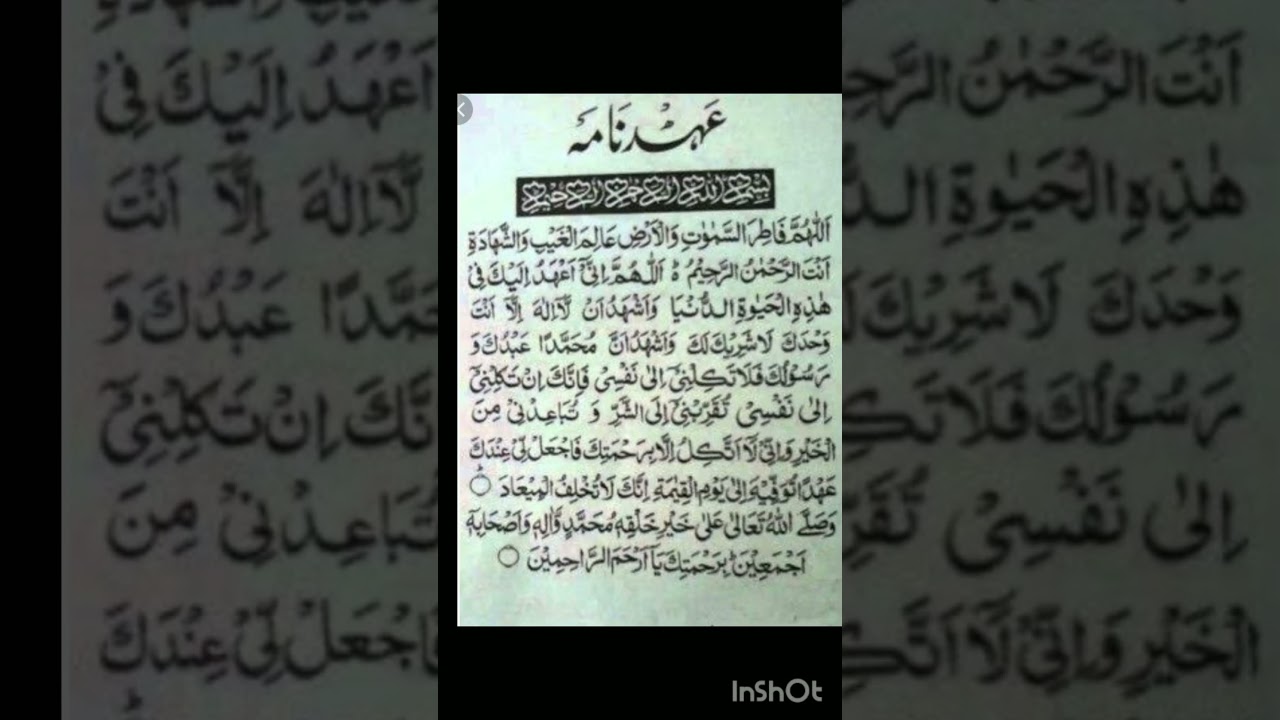 عہدنامہ
بسم الله الرحمن الرحيم
اَللّٰهُمَّ فَاطِرَ السَّمٰوٰتِ وَالْاَرْضِ عَالِمَ الْغَيْبِ وَالشَّهَادَةِ
اَنْتَ الرَّحْمٰنُ الرَّحِيْمُ ؕ اَللّٰهُمَّ اِنِّىْٓ اَعْهَدُ اِلَيْكَ فِىْ
هٰذِهِ الْحَيٰوةِ الدُّنْيَا وَاَشْهَدُ اَنْ لَّآ اِلٰهَ اِلَّآ اَنْتَ
وَحْدَكَ لَا شَرِيْكَ لَكَ وَاَشْهَدُ اَنَّ مُحَمَّدًا عَبْدُكَ وَ
رَسُوْلُكَ فَلَا تَكِلْنِىْٓ اِلٰى نَفْسِىْ فَاِنَّكَ اِنْ تَكِلْنِىْٓ
اِلٰى نَفْسِىْ تُقَرِّبْنِىْٓ اِلَى الشَّرِّ وَ تُبَاعِدْنِىْ مِنَ
الْخَيْرِ وَاِنِّىْ لَآ اَتَّكِلُ اِلَّا بِرَحْمَتِكَ فَاجْعَلْ لِّىْ عِنْدَكَ
عَهْدًا تُوَفِّيْهِ اِلٰى يَوْمِ الْقِيٰمَةِ اِنَّكَ لَا تُخْلِفُ الْمِيْعَادَ ○ؕ
وَصَلَّے اللّٰهُ تَعَالٰى عَلٰى خَيْرِ خَلْقِهٖ مُحَمَّدٍ وَّاٰلِهٖ وَاَصْحَابِهٖ
اَجْمَعِيْنَ ؕ بِرَحْمَتِكَ يَآ اَرْحَمَ الرَّاحِمِيْنَ ○
InShOt